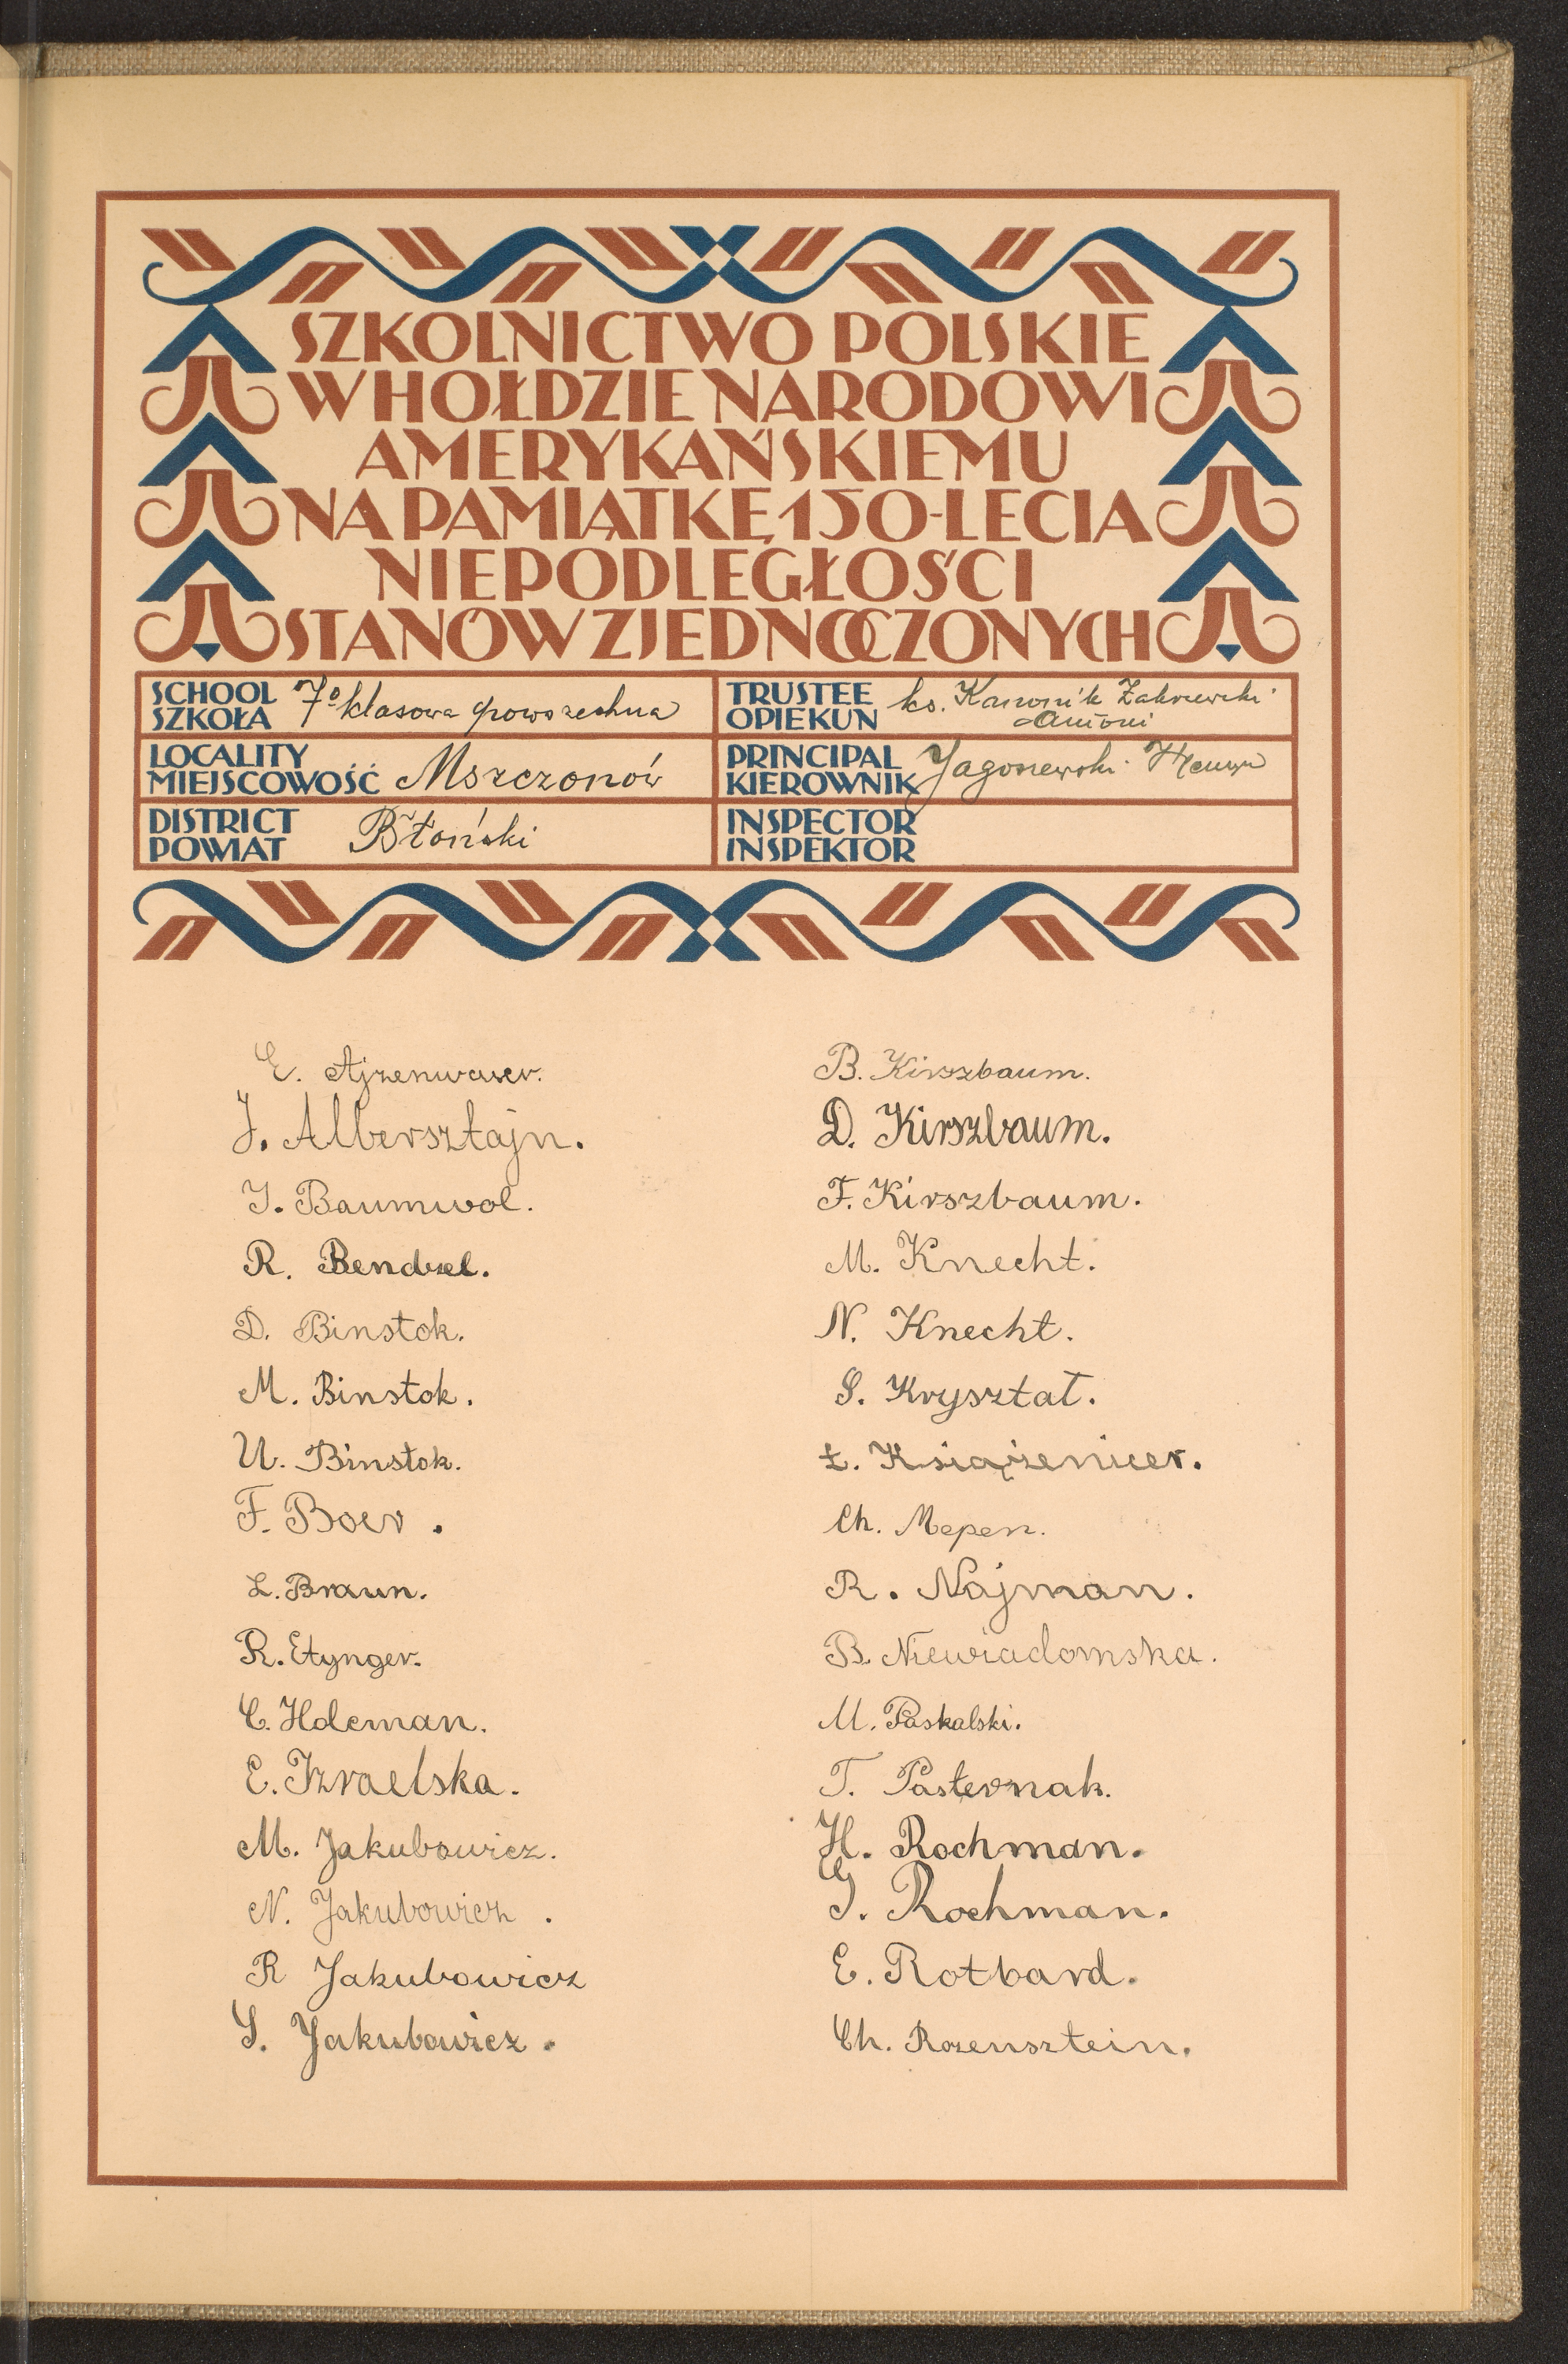 SZKOLNICTWO POLSKIE
W HOŁDZIE NARODOWI
AMERYKAŃSKIEMU
NA PAMIĄTKĘ 150-LECIA
NIEPODLEGŁOŚCI
STANÓW ZJEDNOCZONYCH
SCHOOL
SZKOŁA 7º klasowa powszechna
TRUSTEE
OPIEKUN ks. Kanonik Zakrzewski
Antoni
LOCALITY
MIEJSCOWOŚĆ Mszczonów
PRINCIPAL
KIEROWNIK Jagoszewski
DISTRICT
POWIAT Błoński
INSPECTOR
INSPEKTOR
E. Ajzenwaser.
J. Albersztajn.
J. Baumwol.
R. Bendzel.
D. Binstok.
M. Binstok.
U. Binstok.
F. Boer.
L. Braun.
R. Etynger.
C. Holcman.
E. Izraelska.
M. Jakubowicz.
N. Jakubowicz.
R Jakubowicz
S. Jakubowicz.
B. Kirszbaum.
D. Kirszbaum.
F. Kirszbaum.
M. Knecht.
N. Knecht.
S. Kryształ.
Ł. Książenicer.
Ch. Mepen.
R. Najman.
B. Niewiadomska.
M. Paskalski.
T. Pasternak.
H. Rochman.
G. Rochman.
E. Rotbard.
Ch. Rozensztein.